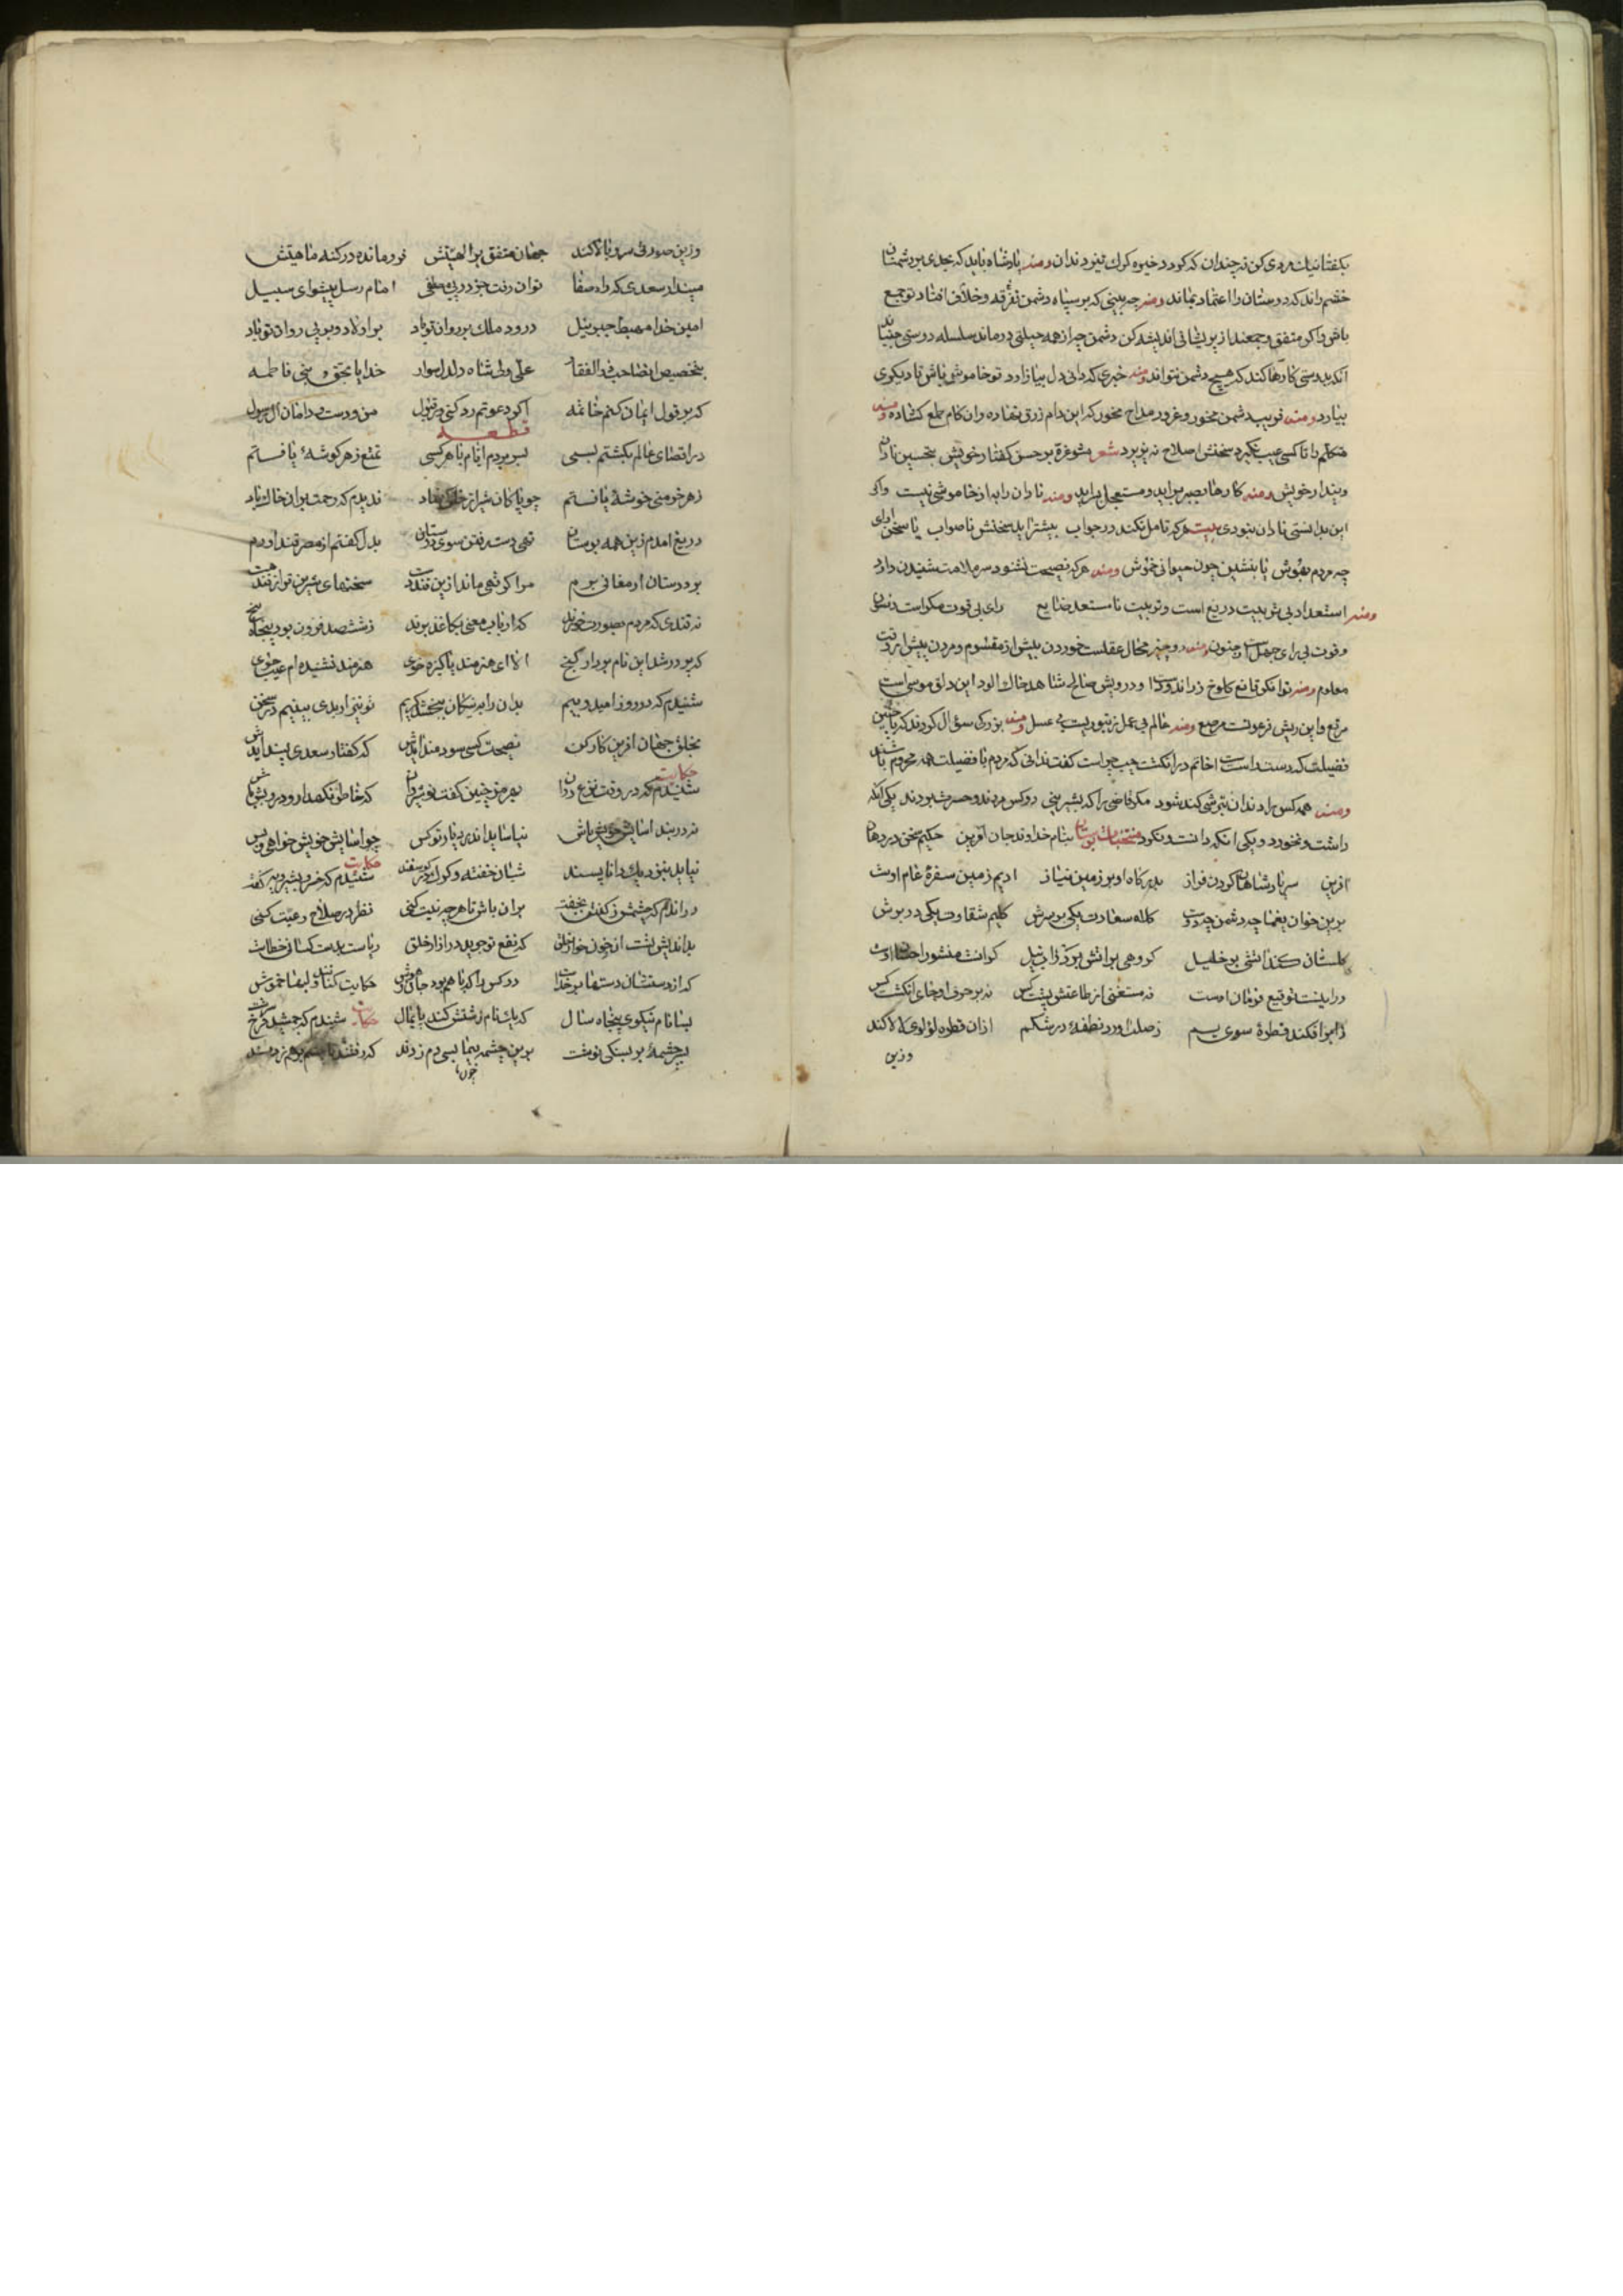 بکفتا نیك مردی کن نه چندان که کردد خیره کرك تیز دندان ومنه پادشاه باید که بحدی بر دشمنان
خشم راند که دوستان را اعتماد بماند ومنه چه بینی که بر سپاه دشمن تفرقه وخلاف افتاد تو جمع
باش واکر متفق وجمعند از پریشانی اندیشه کن دشمن چو از همه حیلتی درماند سلسله دوستی جنباند
آنکه بدوستی کارها کند که هیچ دشمن نتواند ومنه خبری که دانی دل بیازارد تو خاموش باش تا دیکری
بیارد ومنه فریب دشمن مخور وغرور مداح مخور که این دام زرق نهاده وان کام طمع کشاده ومنه
متکلم را تا کسی عیب نکیرد سخنش اصلاح نه پزیرد شعر مشو غره بر حسن کفتار خویش بتحسین نادان
وپندار خویش ومنه کارها بصبر براید ومستعجل براید ومنه نادان را به از خاموشی نیست واکر
این بدانستی نادان نبودی بیت هر که تامل نکند در جواب بیشتر اید سخنش ناصواب یا سخن ارای
چه مردم بهوش یا بنشین چون حیوانی خموش ومنه هر که نصیحت نشنود سر ملامت شنیدن دارد
ومنه استعداد بی تربیت دریغ است وتربیت نا مستعد ضایع رای بی قوت مکر است وفسون
وقوت بی رای جهل است وجنون ومنه دو چیز محال عقلست خوردن بیش از مقسوم ومردن پیش از وقت
معلوم ومنه توانکر قانع کلوخ زر اندود است ودرویش صالح شاهد خاك الود این دلق موسی است
مرقع واین ریش فرعونست مرصع ومنه عالم بی عمل زنبوریست بی عسل ومنه بزرکی سؤال کردند که با چنین
فضیلت که دست راست راست خاتم در انکشت چپ چراست کفت ندانی که مردم با فضیلت همه محروم باشند
ومنه همه کس را دندان بترشی کند شود مکر قاضی را که بشیرینی دو کس مردند وحسرت بردند یکی انکه
داشت ونخورد ویکی انکه دانست ونکرد منتخبات بوستان بنام خداوند جان افرین حکیم سخن در زبان
افرین سر پادشاهان کردن فراز بدرکاه او بر زمین نیاز ادیم زمین سفرهٔ عام اوست
برین خوان یغما چه دشمن چه دوست کلاه سعادت یکی بر سرش کلیم شقاوت یکی در برش
کلستان کند اتشی بر خلیل کروهی بر اتش برد ز اب نیل کر انست منشور احسان اوست
ور اینست توقیع فرمان اوست نه مستغنی از طاعتش پشت کس نه بر حرف او جای انکشت کس
ز ابر افکند قطرهٔ سوی یم ز صلب اورد نطفهٔ در شکم ازان قطره لؤلوی لالا کند
وزین
وزین صورتی سرو بالا کند جهان متفق بر الهیتش فرو مانده در کنه ماهیتش
مپندار سعدی که راه صفا توان رفت جز در پی مصطفی امام رسل پیشوای سبیل
امین خدا مهبط جبرئیل درود ملك بر روان تو باد بر اولاد وبر پی روان تو باد
بتخصیص انصاحب ذوالفقار علی ولی شاه دلدل سوار خدایا بحق بنی فاطمه
که بر قول ایمان کنم خاتمه اکر دعوتم رد کنی ور قبول من ودست ودامان ال رسول
قطعه
در اقصای عالم بکشتم بسی بسر بردم ایام با هر کسی تمتع ز هر کوشهٔ یافتم
ز هر خرمنی خوشهٔ یافتم چو پاکان شیراز خاکی نهاد ندیدم که رحمت بران خاك باد
دریغ امدم زین همه بوستان تهی دست رفتن سوی دوستان بدل کفتم از مصر قند اورم
بر دوستان ارمغانی برم مرا کر تهی ماند ازین قند دست سخنهای شیرین تر از قند هست
نه قندی که مردم بصورت خورند که ارباب معنی بکاغذ برند ز ششصد فزون بود پنجاه وپنج
که پر در شد این نام بردار کنج الا ای هنرمند پاکیزه خوی هنرمند نشنیده ام عیب جوی
شنیدم که در روز امید وبیم بدان را به نیکان ببخشد کریم تو نیز ار بدی بینیم در سخن
بخلق جهان افرین کار کن نصیحت کسی سودمند ایدش که کفتار سعدی پسند ایدش
حکایت
شنیدم که در وقت نزع روان بهرمز چنین کفت نوشیروان که خاطر نکهدار درویش باش
نه در بند اسایش خویش باش نیاساید اندر دیار تو کس چو اسایش خویش خواهی وبس
نیاید بنزدیك دانا پسند شبان خفته وکرك در کوسفند حکایت شنیدم که خسرو بشیرویه کفت
در اندم که چشمش ز کفتن بخفت بران باش تا هر چه نیت کنی نظر در صلاح رعیت کنی
بداندیش تست ان چون خوار خلق که نفع تو جوید در ازار خلق ریاست بدست کسانی خطاست
که از دستشان دستها بر خداست
بسا نام نیکوی پنجاه سال که یك نام زشتش کند پایمال حکایت شنیدم که جمشید فرخ سرشت
بسر چشمهٔ بر بسنکی نوشت برین چشمه چون ما بسی دم زدند که رفتند تا چشم بر هم زدند